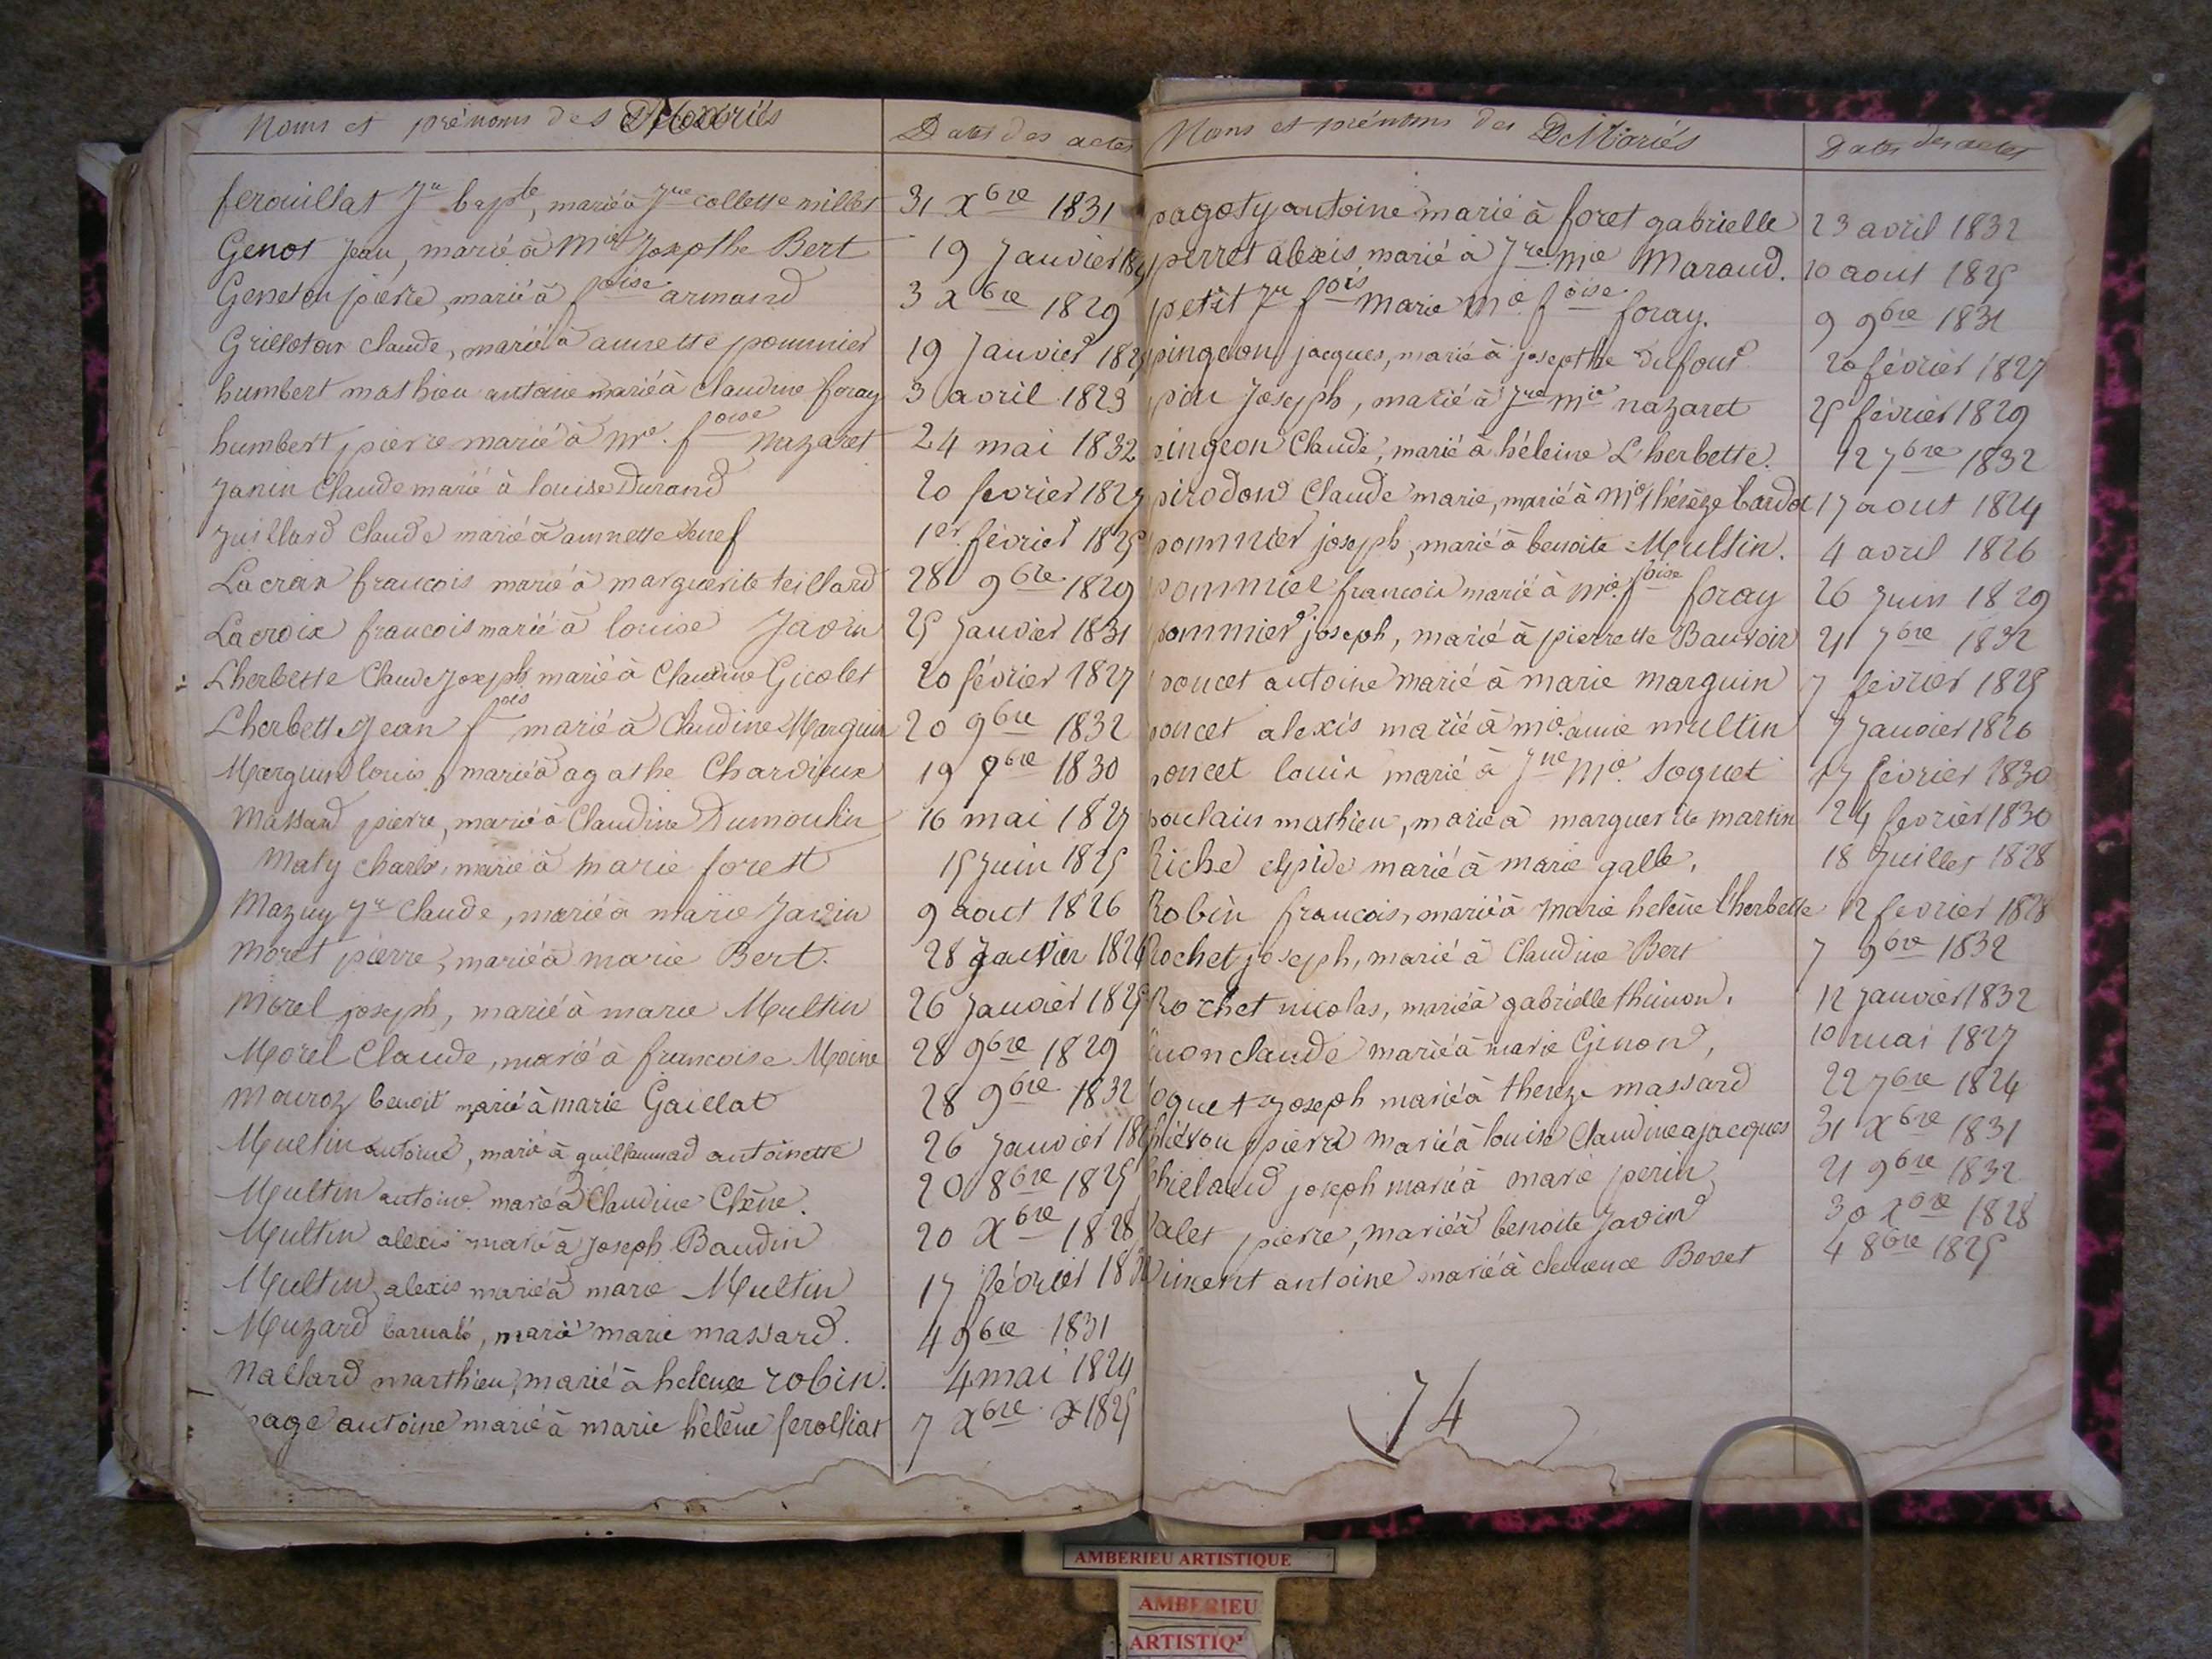 Noms et prénoms des Mariés
Dates des actes
ferouillat Jn bapte, marié à Jne collette millet 31 Xbre 1831
Genot Jean, marié à Mie Josephe Bert 19 Janvier
Geneton pierre, marié à foise armand 3 Xbre 1829
Grilloton claude, marié à annette pommier 19 Janvier
humbert mathieu antoine marié à Claudine foray 3 avril 1823
humbert pierre marié à Me. foise Nazaret 24 mai 1832
Janin Claude marié à louise Durand 20 fevrier 1827
Juillard Claude marié à annette 1er. février 1825
Lacroix francois marié à marguerite teillard 28 9bre 1829
Lacroix francois marié à louise Javin 25 Janvier 1831
Lherbette Claude Joseph marié à Claudine Gicolet 20 février 1827
Lherbette Jean fois marié à Claudine Marguin 20 9bre 1832
Marguin louis, marié à agathe Charvieux 19 9bre 1830
Massard pierre, marié à Claudine Dumoulin 16 mai 1827
Maty charle, marié à marie forest 15 Juin 1825
Mazuy Jn Claude, marié à marie Javin 9 aout 1826
Moret pierre, marié à marie Bert. 28 Janvier 1826
Morel joseph, marié à marie Multin 26 Janvier 1825
Morel Claude, marié à francoise Moine 28 9bre 1829
Mouroz benoit marié à marie Gaillat 28 9bre 1832
Multin antoine, marié à guillaumad antoinette 26 Janvier
Multin antoine. marié à Claudine Chêne. 20 8bre 1825
Multin alexis marié à Joseph Baudin 20 Xbre 1828
Multin alexis marié à marie Multin 17 février
Muzard barnabé, marié marie massard. 4 9bre 1831
Nallard marthieu, marié à helene robin. 4 mai 1824
page antoine marié à marie hélène ferolliat 7 Xbre 1825
Noms et prénoms des Mariés
Dates des actes
pagoty antoine marié à foret gabrielle 23 avril 1832
perret alexis marié à Jne Mie Maraud. 10 aout 1825
petit Jn fois marié Me. foise foray. 9 9bre 1831
pingeon jacques, marié à josepthe Dufour 20 février 1827
pin Joseph, marié à Jne mie nazaret 25 février 1829
pingeon Claude, marié à héleine L'herbette. 12 7bre 1832
pirodon Claude marie, marié à Mie thérèze bardot 17 aout 1824
pommier joseph, marié à benoite Multin. 4 avril 1826
pommier francois marié à Me. foise foray 26 Juin 1829
pommier joseph, marié à pierrette Bauvoir 21 7bre 1832
poncet antoine marié à marie marguin 7 février 1825
poncet alexis marié à Me. anne multin 7 Janvier 1826
poncet louis marié à Jne Me. Soquet 17 février 1830
poulain mathieu, marié à marguerite martin 24 fevrier 1830
Riche elpide marié à marie galle. 18 Juillet 1828
Robin francois, marié à marie helène lherbette 12 fevrier 1828
Rochet joseph, marié à Claudine Bert 7 9bre 1832
Rochet nicolas, marié à gabrielle thinon. 12 Janvier 1832
claude marié à marie Ginon, 10 mai 1827
Soquet Joseph marié à thereze massard 22 7bre 1824
pierre marié à louise Claudine ajacques 31 Xbre 1831
joseph marié à marie perin 21 9bre 1832
Valet pierre, marié à benoite Javin 30 Xbre 1828
Vincent antoine marié à clemence Bovet 4 8bre 1825
74
AMBERIEU ARTISTIQUE
AMBERIEU
ARTISTIQ